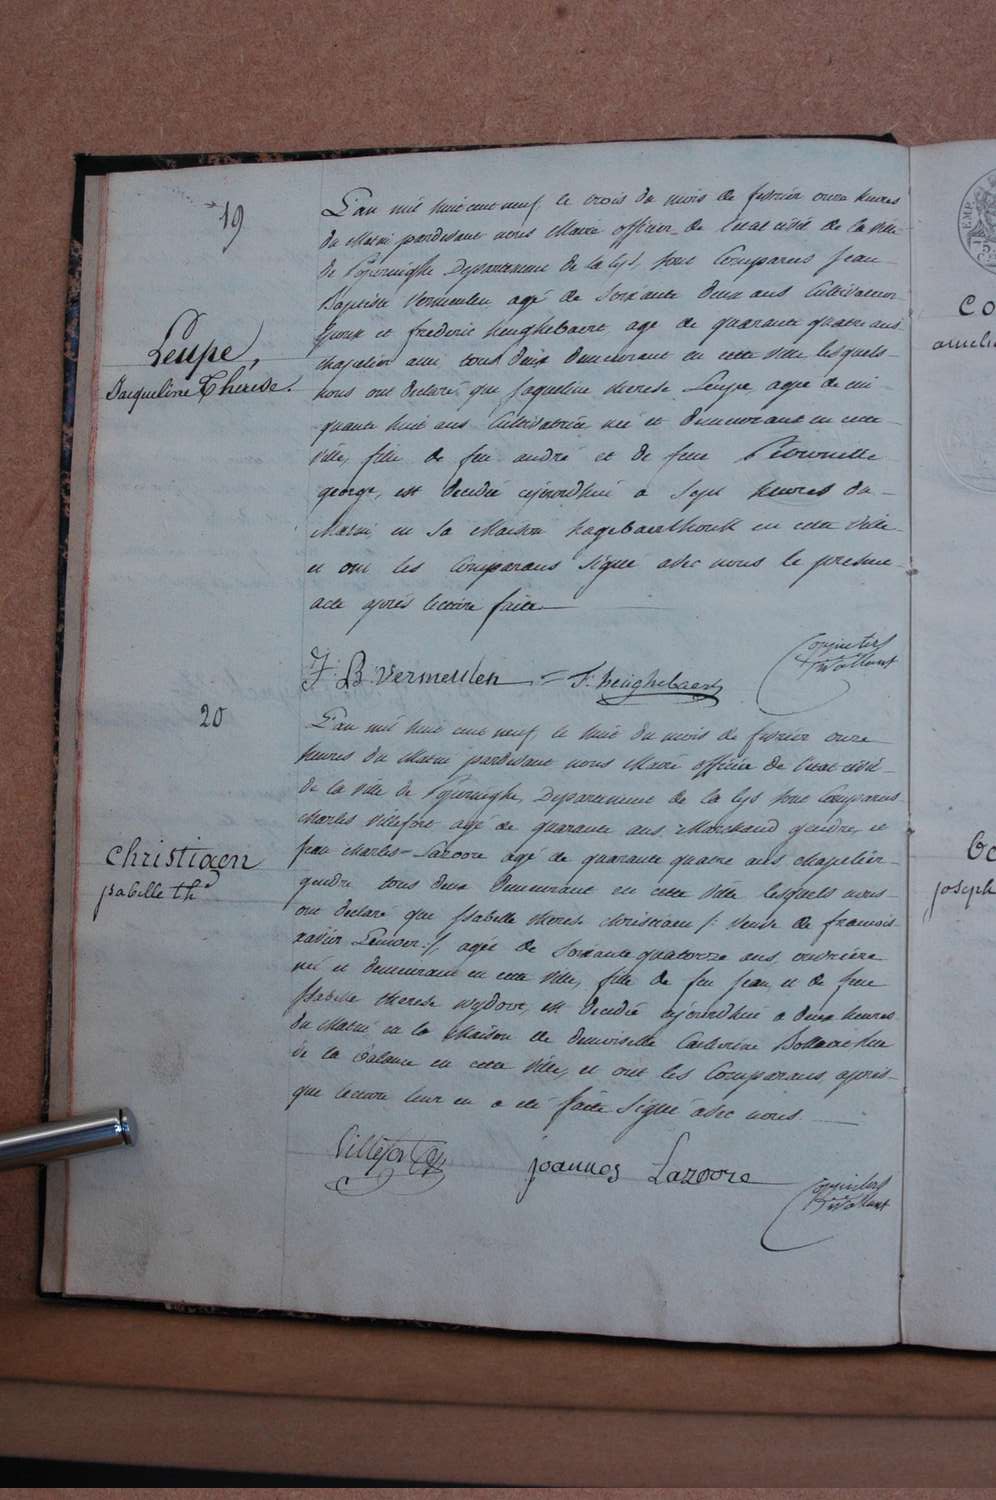 19
Leupe,
Jacqueline Therese.
L'an mil huit cent neuf, le trois du mois de fevrier onze heures
du Matin pardevant nous Maire officier de l'etat civil de la ville
de Poperinghe Departement de la Lys, sont Comparus Jean
Baptiste Vermeulen agé de soixante deux ans Cultivateur
et frederic heughebaert age de quarante quatre ans
chapelier ami tous deux demeurant en cette ville lesquels
nous ont declaré que Jaqueline therese Leupe, agée de cin
quante huit ans Cultivatrice née et demeurant en cette
ville, fille de feu andré et de feue Petronelle
george, est decedée ajourdhui a sept heures du
Matin en sa Maison hagebaerthouck en cette ville
et ont les Comparans signé avec nous le present
acte après lecture faite
J: B. Vermeulen = F: heughebaert
20
christiaen
isabelle th
L'an mil huit cent neuf, le huit du mois de fevrier onze
heures du Matin pardevant nous Maire officier de l'etat civil
de la ville de Poperinghe, Departement de la Lys sont Comparus
charles Villefort agé de quarante ans Marchand gendre, et
jean charles Lazoore agé de quarante quatre ans chapelier
gendre tous deux demeurant en cette ville lesquels nous
ont declaré que Isabelle therese christiaen /: veuve de francois
xavier :/, agée de soixante quatorze ans ouvrière
née et demeurant en cette ville, fille de feu jean, et de feue
Isabelle therese est decedée ajourdhui a deux heures
du Matin en la Maison de demoiselle Catherine
de la balance en cette ville, et ont les Comparans, après
que lecture leur en a été faite signé avec nous
Villefort joannes Lazoore
EMP
75
CO
amelie
joseph